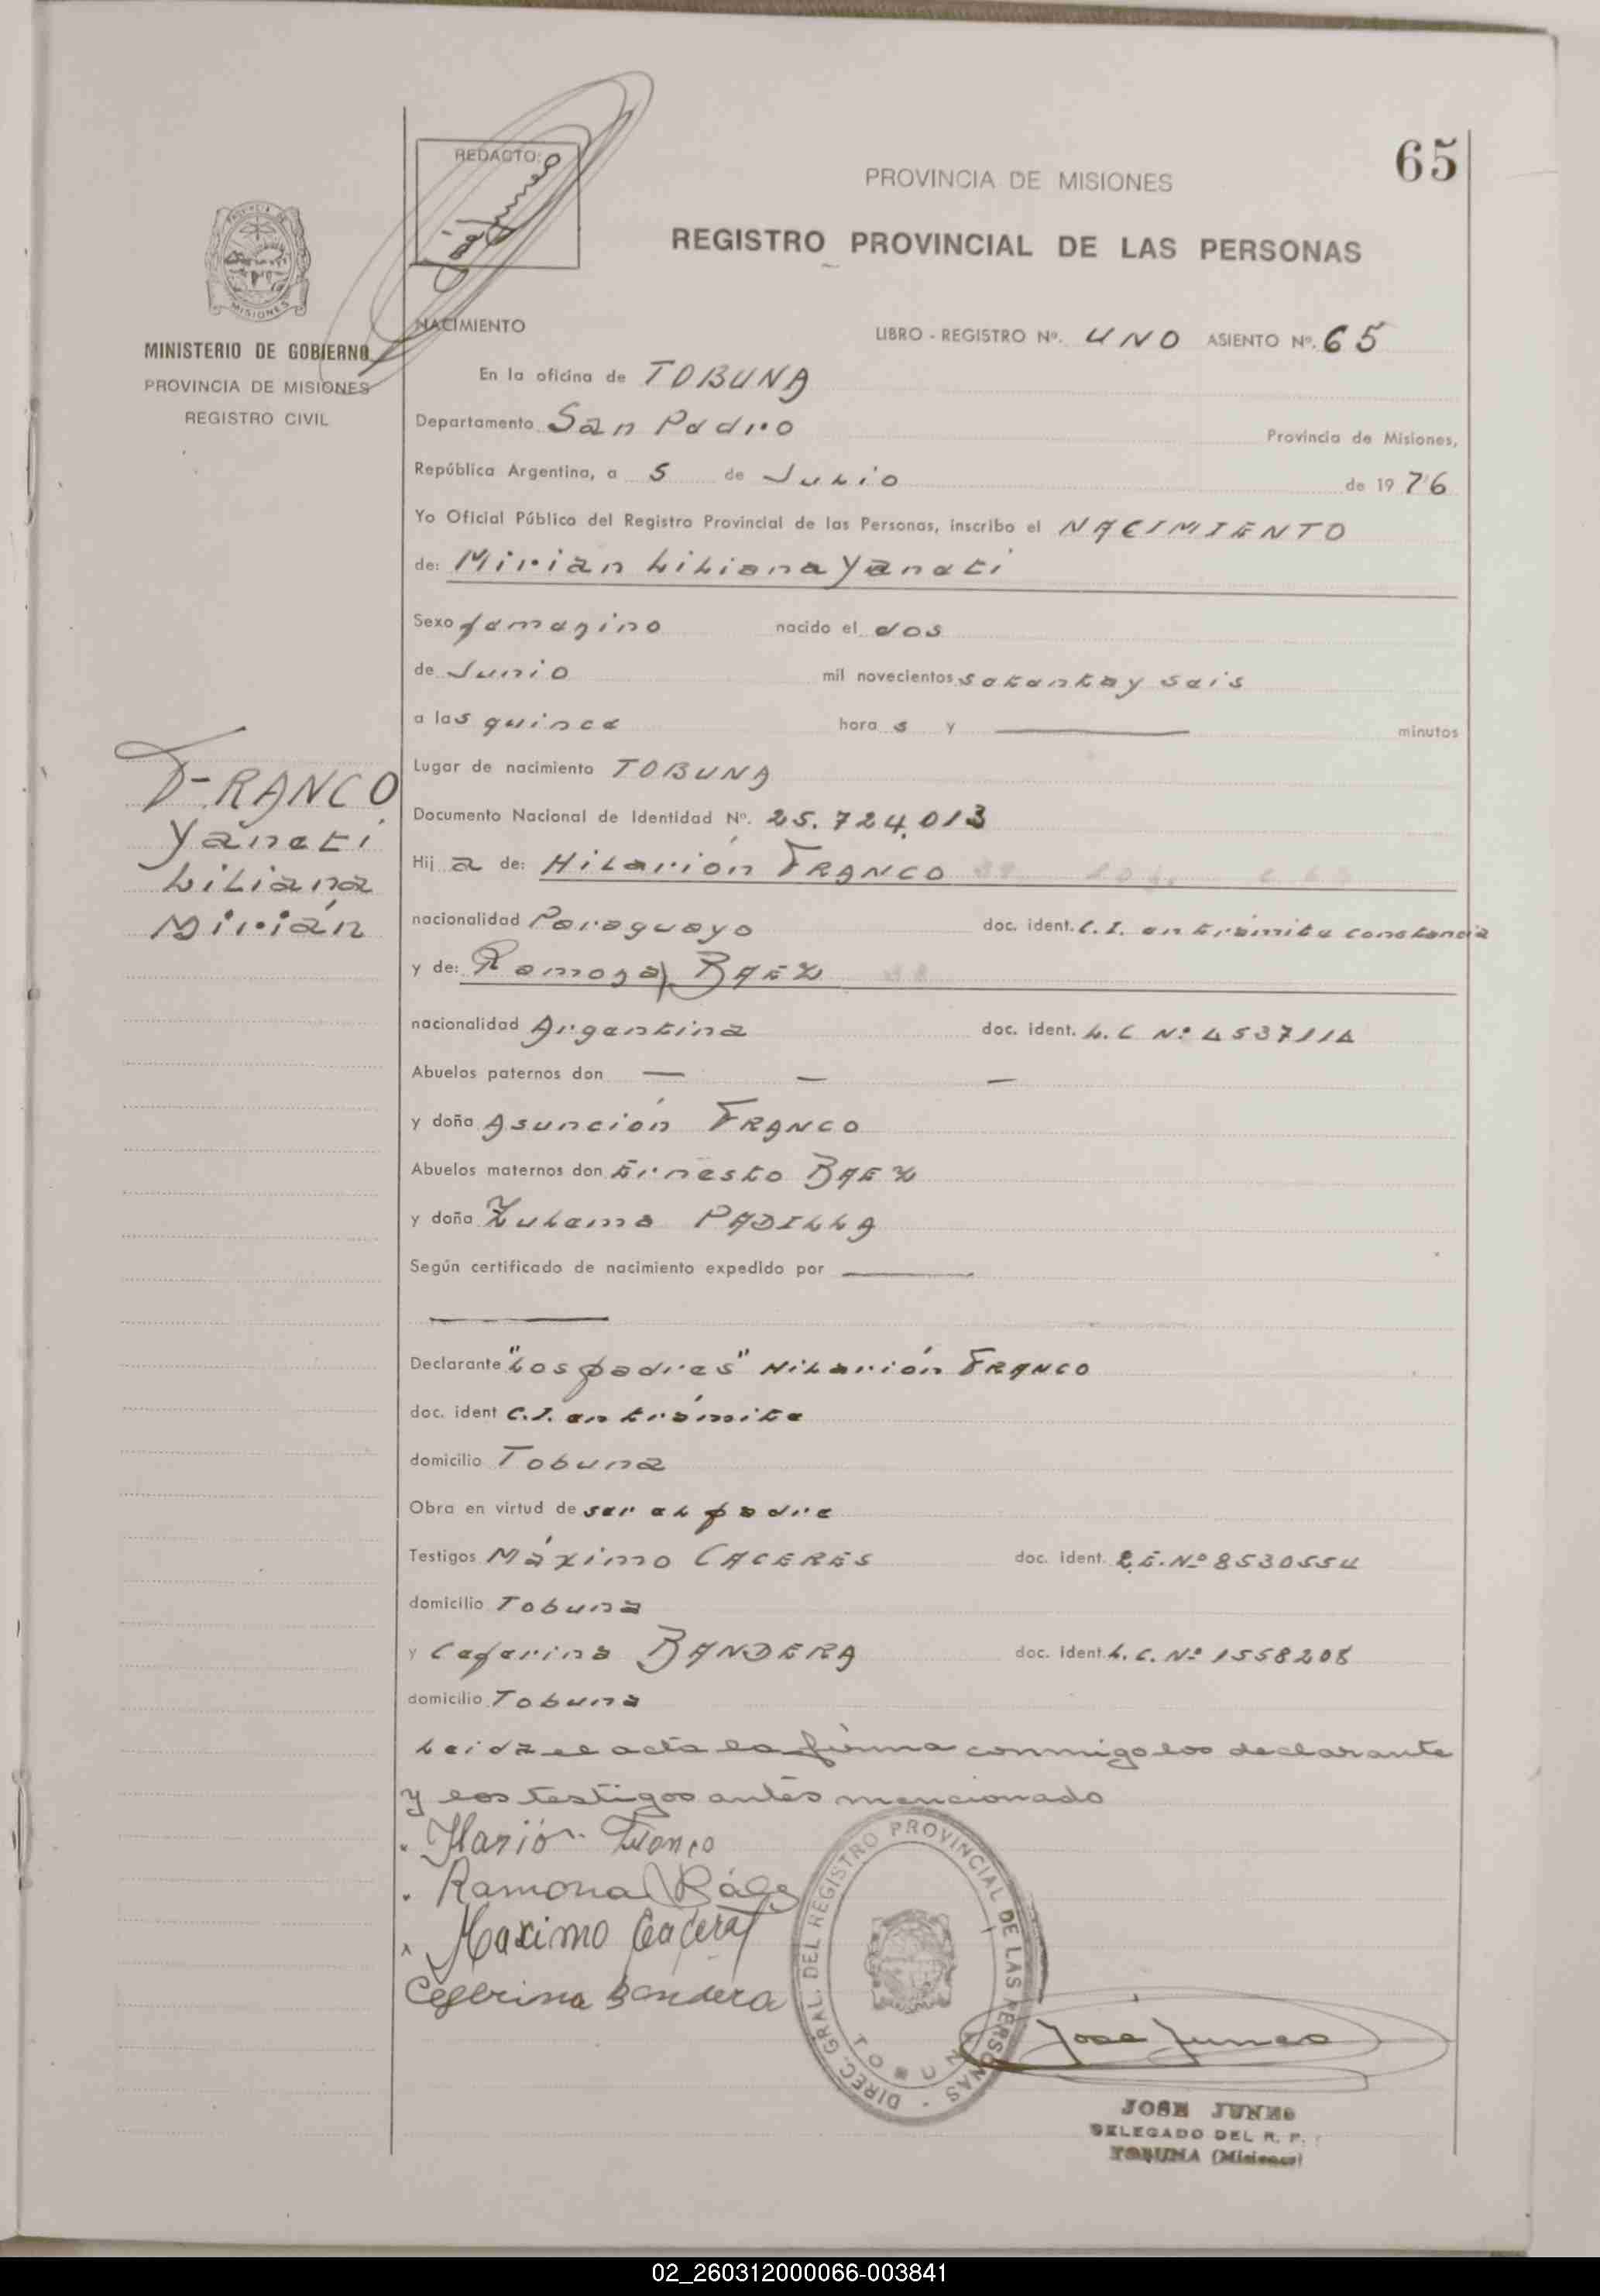 65
REDACTO:
PROVINCIA DE MISIONES
REGISTRO PROVINCIAL DE LAS PERSONAS
PROVINCIA DE
MISIONES
MINISTERIO DE GOBIERNO
PROVINCIA DE MISIONES
REGISTRO CIVIL
NACIMIENTO
LIBRO - REGISTRO Nº. UNO ASIENTO Nº. 65
En la oficina de TOBUNA
Departamento San Pedro Provincia de Misiones,
República Argentina, a 5 de Junio de 1976
Yo Oficial Público del Registro Provincial de las Personas, inscribo el NACIMIENTO
de: Mirian Liliana Yaneti
Sexo femenino nacido el dos
de Junio mil novecientos setenta y seis
a las quince hora s y — minutos
Lugar de nacimiento TOBUNA
Documento Nacional de Identidad Nº. 25.724.013
FRANCO
Yaneti
Liliana
Mirián
Hij a de: Hilarión FRANCO
nacionalidad Paraguayo doc. ident. C.I. en trámite constancia
y de: Ramona BAEZ
nacionalidad Argentina doc. ident. L.C Nº 4537114
Abuelos paternos don — — —
y doña Asunción FRANCO
Abuelos maternos don Ernesto BAEZ
y doña Zulema PADILLA
Según certificado de nacimiento expedido por —
—
Declarante "Los padres" Hilarión FRANCO
doc. ident C.I. en trámite
domicilio Tobuna
Obra en virtud de ser el padre
Testigos Máximo CACERES doc. ident. L.E. Nº 8530554
domicilio Tobuna
y Ceferina BANDERA doc. ident. L.C. Nº 1558208
domicilio Tobuna
Leida el acta la firma conmigo los declarante
y los testigos antes mencionado
Ilarió Franco
Ramona Báez
Maximo Caceres
Ceferina Bandera
DIREC. GRAL. DEL REGISTRO PROVINCIAL DE LAS PERSONAS
TOBUNA
José Junes
JOSE JUNES
DELEGADO DEL R. P.
TOBUNA (Misiones)
02_260312000066-003841